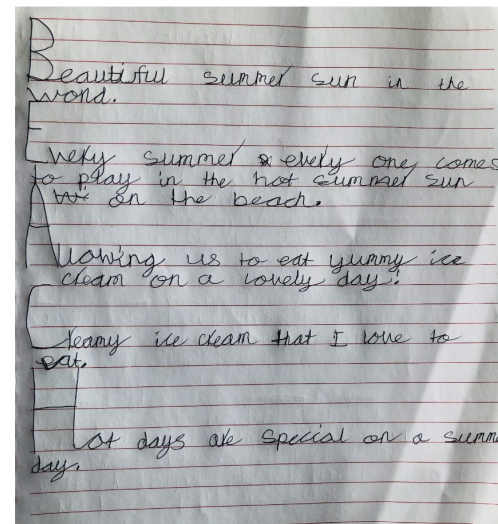 Beautiful summer sun in the
world.
Every summer every one comes
to play in the hot summer sun
on the beach.
Allowing us to eat yummy ice
cream on a lovely day!
Creamy ice cream that I love to
eat.
Hot days are special on a summ
day.